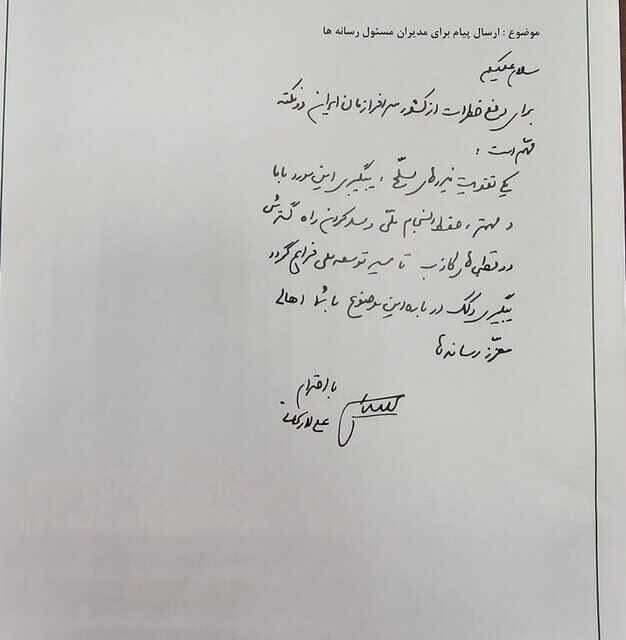 موضوع : ارسال پیام برای مدیران مسئول رسانه ها
سلام علیکم
برای رفع خطرات از کشور سرافرازمان ایران دو نکته
مهّم است :
یکی تقویت نیروهای مسلّح ، پیگیری این مورد با ما
و مهمتر ، حفظ انسجام ملّی و سد کردن راه گسترش
دوقطبی‌های کاذب تا مسیر توسعه ملی فراهم گردد
پیگیری و کمک در باره این موضوع با شما اهالی
معزّز رسانه‌ها
با احترام
علی لاریجانی